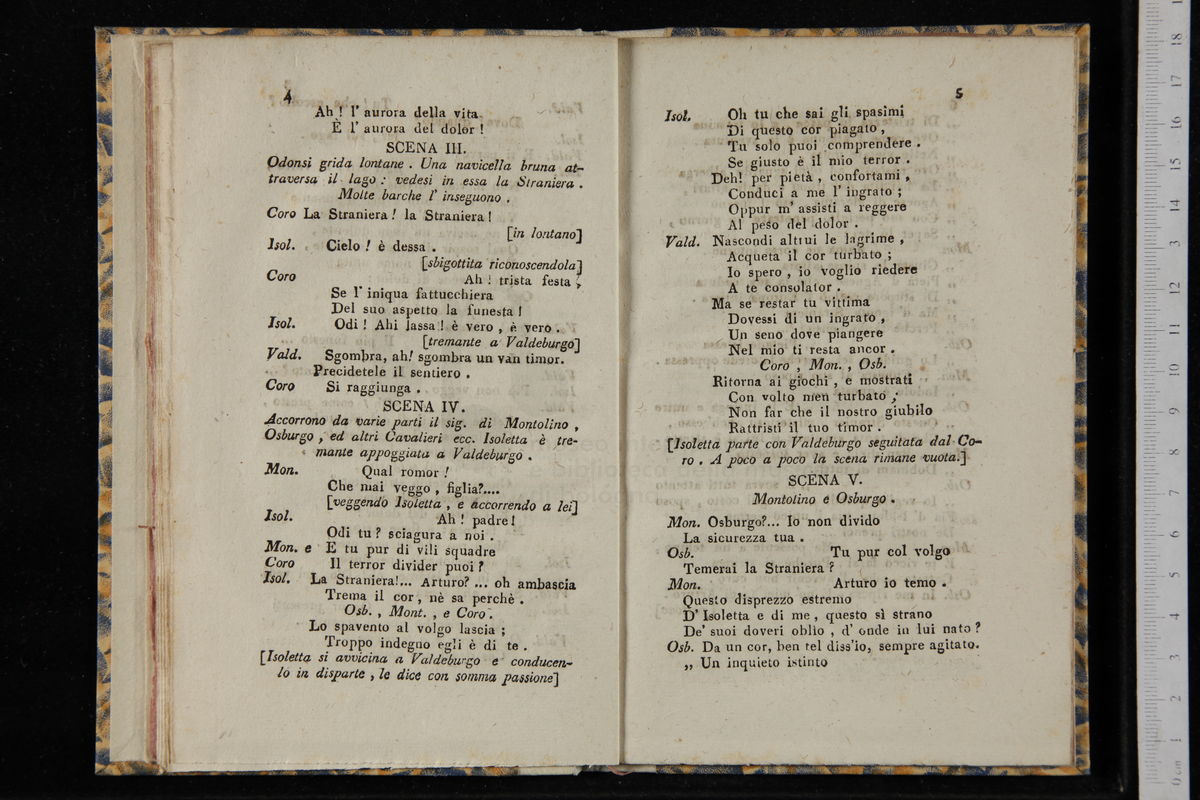 4
Ah ! l' aurora della vita
È l' aurora del dolor !
SCENA III.
Odonsi grida lontane . Una navicella bruna at-
traversa il lago : vedesi in essa la Straniera .
Molte barche l' inseguono .
Coro La Straniera ! la Straniera !
[in lontano]
Isol. Cielo ! è dessa .
[sbigottita riconoscendola]
Coro Ah ! trista festa ,
Se l' iniqua fattucchiera
Del suo aspetto la funesta !
Isol. Odi ! Ahi lassa ! è vero , è vero .
[tremante a Valdeburgo]
Vald. Sgombra, ah! sgombra un van timor.
Precidetele il sentiero .
Coro Si raggiunga .
SCENA IV.
Accorrono da varie parti il sig. di Montolino ,
Osburgo , ed altri Cavalieri ecc. Isoletta è tre-
mante appoggiata a Valdeburgo .
Mon. Qual romor !
Che mai veggo , figlia?....
[veggendo Isoletta , e accorrendo a lei]
Isol. Ah ! padre !
Odi tu ? sciagura a noi .
Mon. e E tu pur di vili squadre
Coro Il terror divider puoi ?
Isol. La Straniera!... Arturo? ... oh ambascia
Trema il cor , nè sa perchè .
Osb. , Mont. , e Coro .
Lo spavento al volgo lascia ;
Troppo indegno egli è di te .
[Isoletta si avvicina a Valdeburgo e conducen-
lo in disparte , le dice con somma passione]
5
Isol. Oh tu che sai gli spasimi
Di questo cor piagato ,
Tu solo puoi comprendere .
Se giusto è il mio terror .
Deh! per pietà , confortami ,
Conduci a me l' ingrato ;
Oppur m' assisti a reggere
Al peso del dolor .
Vald. Nascondi altrui le lagrime ,
Acqueta il cor turbato ;
Io spero , io voglio riedere
A te consolator .
Ma se restar tu vittima
Dovessi di un ingrato ,
Un seno dove piangere
Nel mio ti resta ancor .
Coro , Mon. , Osb.
Ritorna ai giochi , e mostrati
Con volto men turbato ;
Non far che il nostro giubilo
Rattristi il tuo timor .
[Isoletta parte con Valdeburgo seguitata dal Co-
ro . A poco a poco la scena rimane vuota.]
SCENA V.
Montolino e Osburgo .
Mon. Osburgo?... Io non divido
La sicurezza tua .
Osb. Tu pur col volgo
Temerai la Straniera ?
Mon. Arturo io temo .
Questo disprezzo estremo
D' Isoletta e di me , questo sì strano
De' suoi doveri oblìo , d' onde in lui nato ?
Osb. Da un cor, ben tel diss'io, sempre agitato.
„ Un inquieto istinto